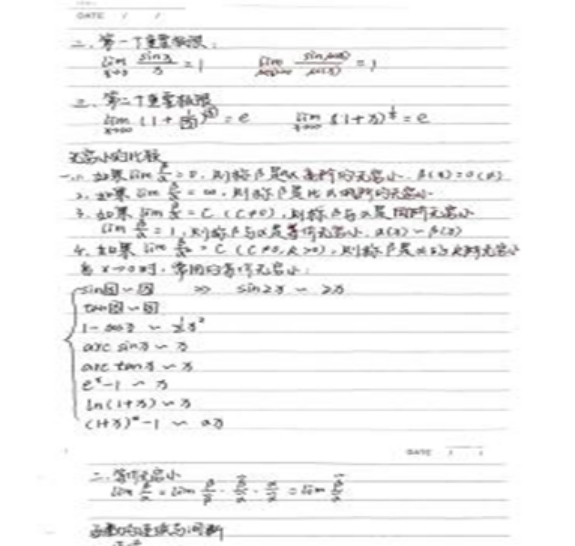 DATE / /
二、第一个重要极限:
lim x→0 sinx/x = 1 lim sin u(x)/u(x) = 1
三、第二个重要极限
lim x→∞ (1+1/図)^図 = e lim (1+x)^(1/x) = e
无穷小的比较
1. 如果 lim β/α = 0, 则称β是比α高阶的无穷小.
2. 如果 lim β/α = ∞, 则称β是比α低阶的无穷小.
3. 如果 lim β/α = C (C≠0), 则称β与α是同阶无穷小
lim β/α = 1, 则称β与α是等价无穷小. α(x) ~ β(x)
4. 如果 lim = C (C≠0, k>0), 则称β是α的k阶无穷小
当 x→0时, 常用的等价无穷小:
sin図 ~ 図 => sin2x ~ 2x
tan図 ~ 図
1 - cosx ~ ½x²
arc sinx ~ x
arc tanx ~ x
eˣ-1 ~ x
ln(1+x) ~ x
(1+x)ᵃ-1 ~ ax
DATE / /
二、等价无穷小
函数的连续与间断